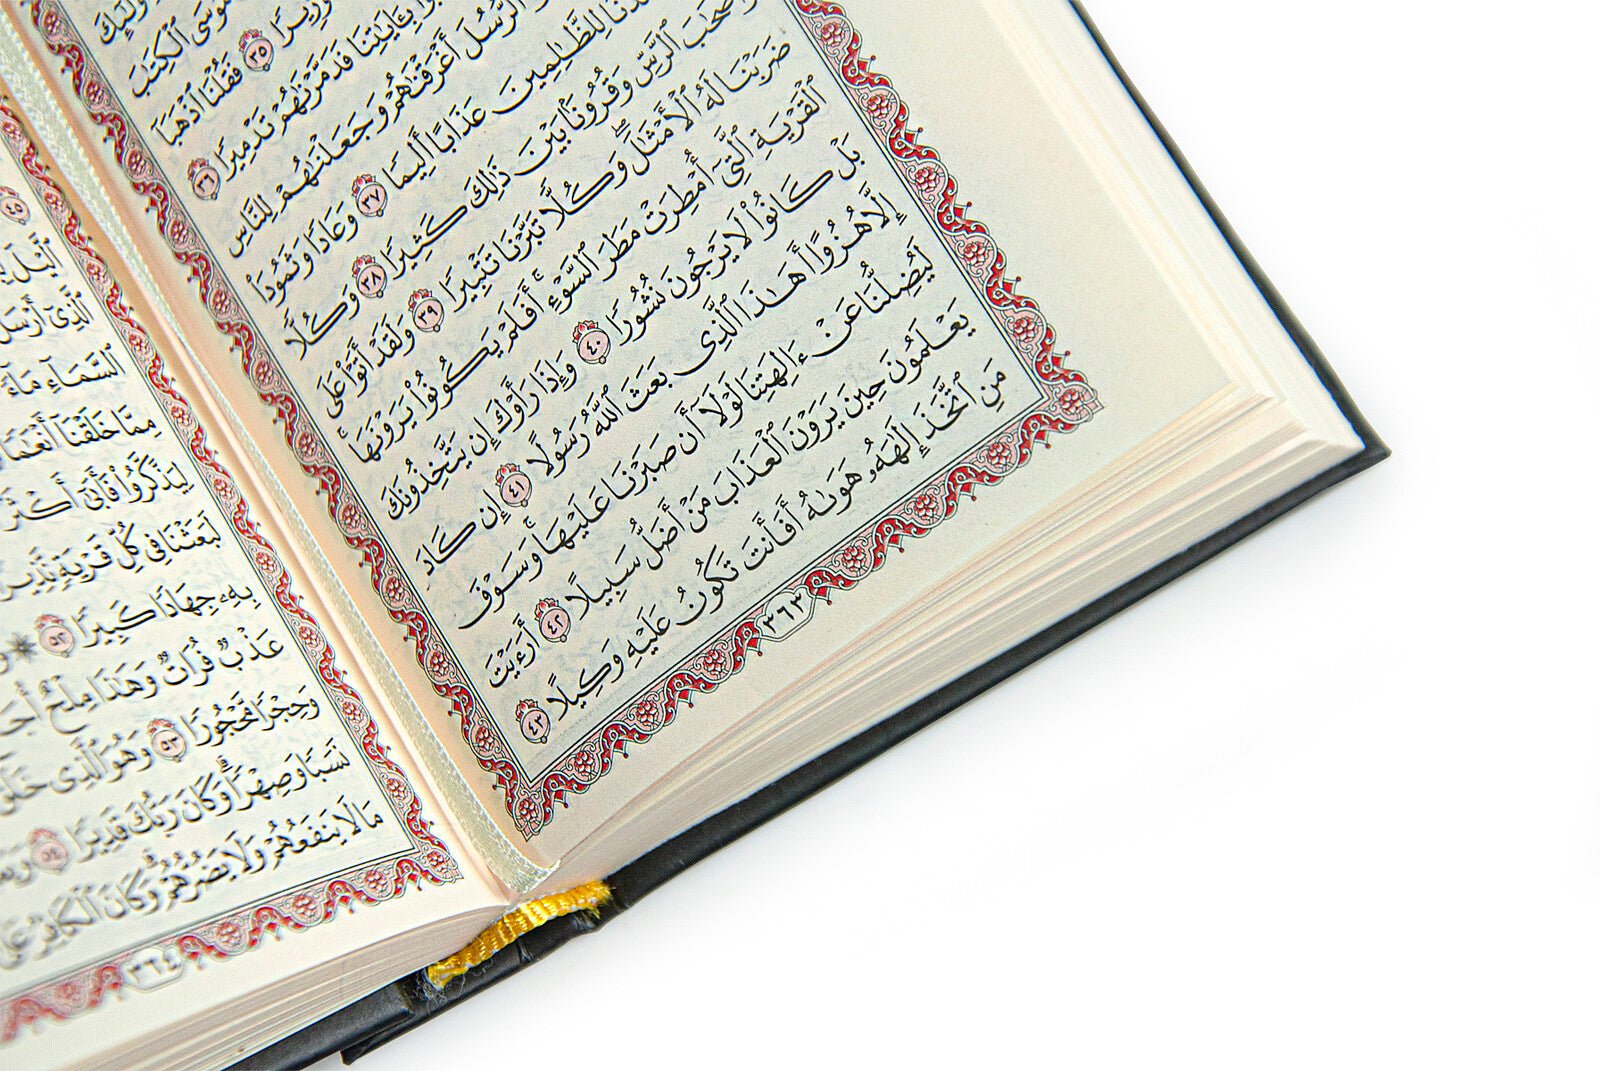 مُوسَى ٱلْكِتَٰبَ
وَزِيرًا ٣٥ فَقُلْنَا ٱذْهَبَآ
بِـَٔايَٰتِنَا فَدَمَّرْنَٰهُمْ تَدْمِيرًا ٣٦
ٱلرُّسُلَ أَغْرَقْنَٰهُمْ وَجَعَلْنَٰهُمْ لِلنَّاسِ
لِلظَّٰلِمِينَ عَذَابًا أَلِيمًا ٣٧ وَعَادًا وَثَمُودَا۟
وَأَصْحَٰبَ ٱلرَّسِّ وَقُرُونًۢا بَيْنَ ذَٰلِكَ كَثِيرًا ٣٨ وَكُلًّا
ضَرَبْنَا لَهُ ٱلْأَمْثَٰلَ ۖ وَكُلًّا تَبَّرْنَا تَتْبِيرًا ٣٩ وَلَقَدْ أَتَوْا۟ عَلَى
ٱلْقَرْيَةِ ٱلَّتِىٓ أُمْطِرَتْ مَطَرَ ٱلسَّوْءِ ۚ أَفَلَمْ يَكُونُوا۟ يَرَوْنَهَا ۚ
بَلْ كَانُوا۟ لَا يَرْجُونَ نُشُورًا ٤٠ وَإِذَا رَأَوْكَ إِن يَتَّخِذُونَكَ
إِلَّا هُزُوًا أَهَٰذَا ٱلَّذِى بَعَثَ ٱللَّهُ رَسُولًا ٤١ إِن كَادَ
لَيُضِلُّنَا عَنْ ءَالِهَتِنَا لَوْلَآ أَن صَبَرْنَا عَلَيْهَا ۚ وَسَوْفَ
يَعْلَمُونَ حِينَ يَرَوْنَ ٱلْعَذَابَ مَنْ أَضَلُّ سَبِيلًا ٤٢ أَرَءَيْتَ
مَنِ ٱتَّخَذَ إِلَٰهَهُۥ هَوَىٰهُ أَفَأَنتَ تَكُونُ عَلَيْهِ وَكِيلًا ٤٣
٣٦٣
٤٥
ٱلَّذِىٓ أَرْسَلَ
ٱلسَّمَآءِ مَآءً
مِمَّا خَلَقْنَآ أَنْعَٰمًا
لِيَذَّكَّرُوا۟ فَأَبَىٰٓ أَكْثَرُ
لَبَعَثْنَا فِى كُلِّ قَرْيَةٍ نَّذِيرًا
بِهِۦ جِهَادًا كَبِيرًا ٥٢ ۞
عَذْبٌ فُرَاتٌ وَهَٰذَا مِلْحٌ أُجَاجٌ
وَحِجْرًا مَّحْجُورًا ٥٣ وَهُوَ ٱلَّذِى خَلَقَ
نَسَبًا وَصِهْرًا ۗ وَكَانَ رَبُّكَ قَدِيرًا ٥٤
مَا لَا يَنفَعُهُمْ وَلَا يَضُرُّهُمْ ۗ وَكَانَ ٱلْكَافِرُ عَلَىٰ
٣٦٤